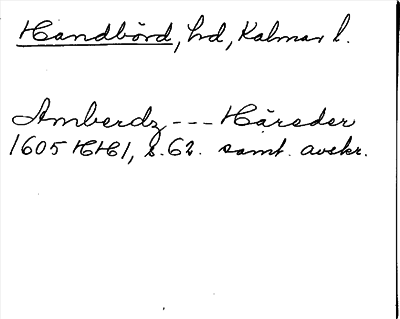 Handbörd, hd, Kalmar l.
Amberdz --- Häreder
1605 HH1, s. 62. samt. avskr.